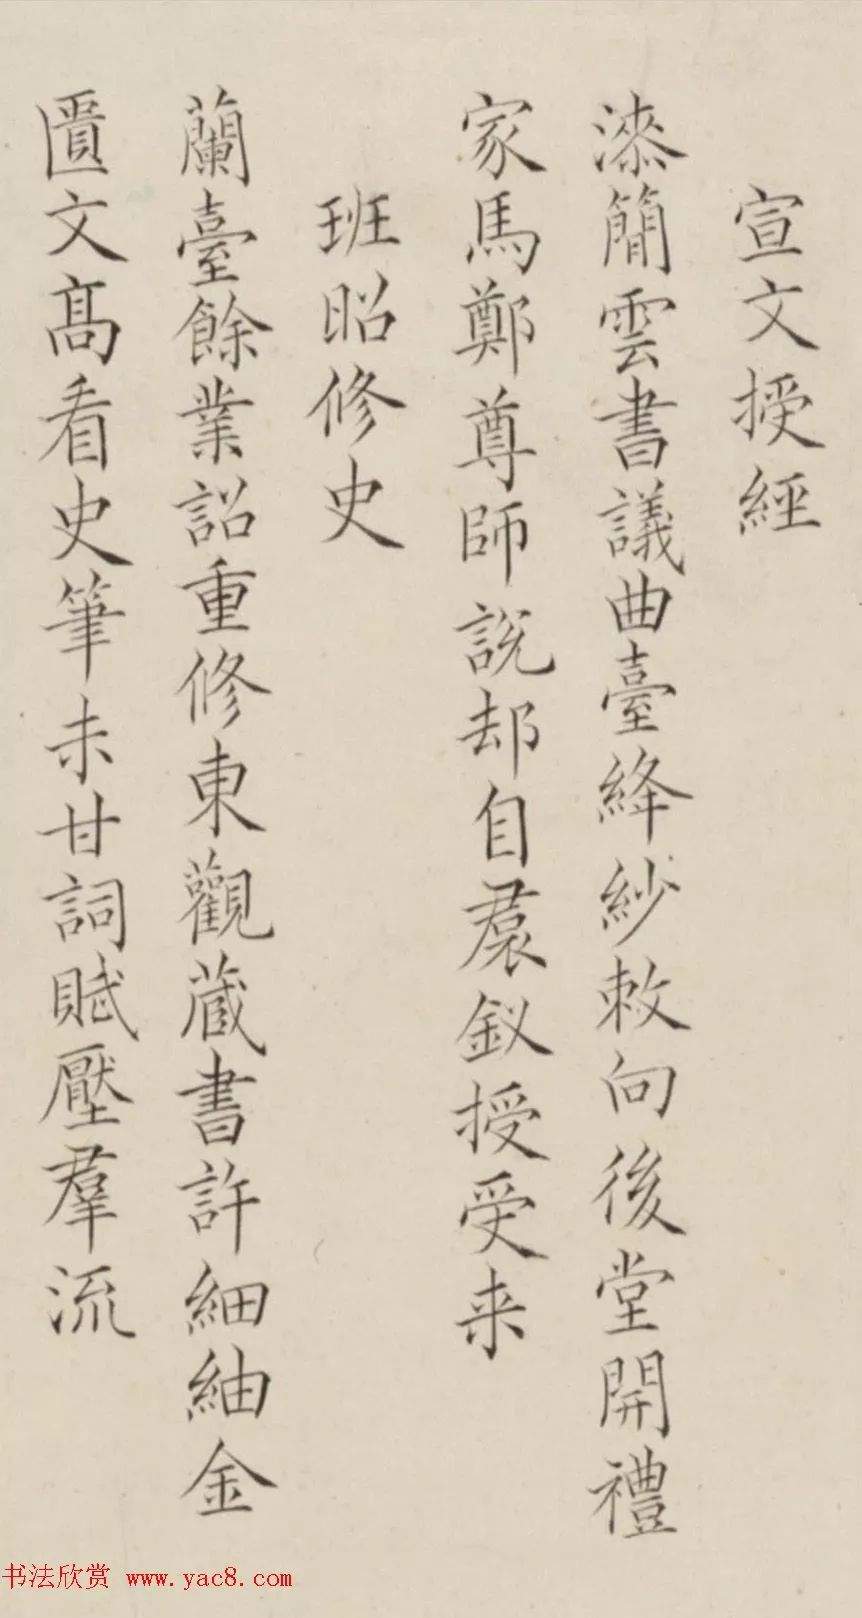 宣文授經
漆簡雲書議曲臺絳紗敕向後堂開禮
家馬鄭尊師說却自裠釵授受来
班昭修史
蘭臺餘業詔重修東觀蔵書許細紬金
匱文髙看史筆未甘詞賦壓羣流
书法欣赏 www.yac8.com